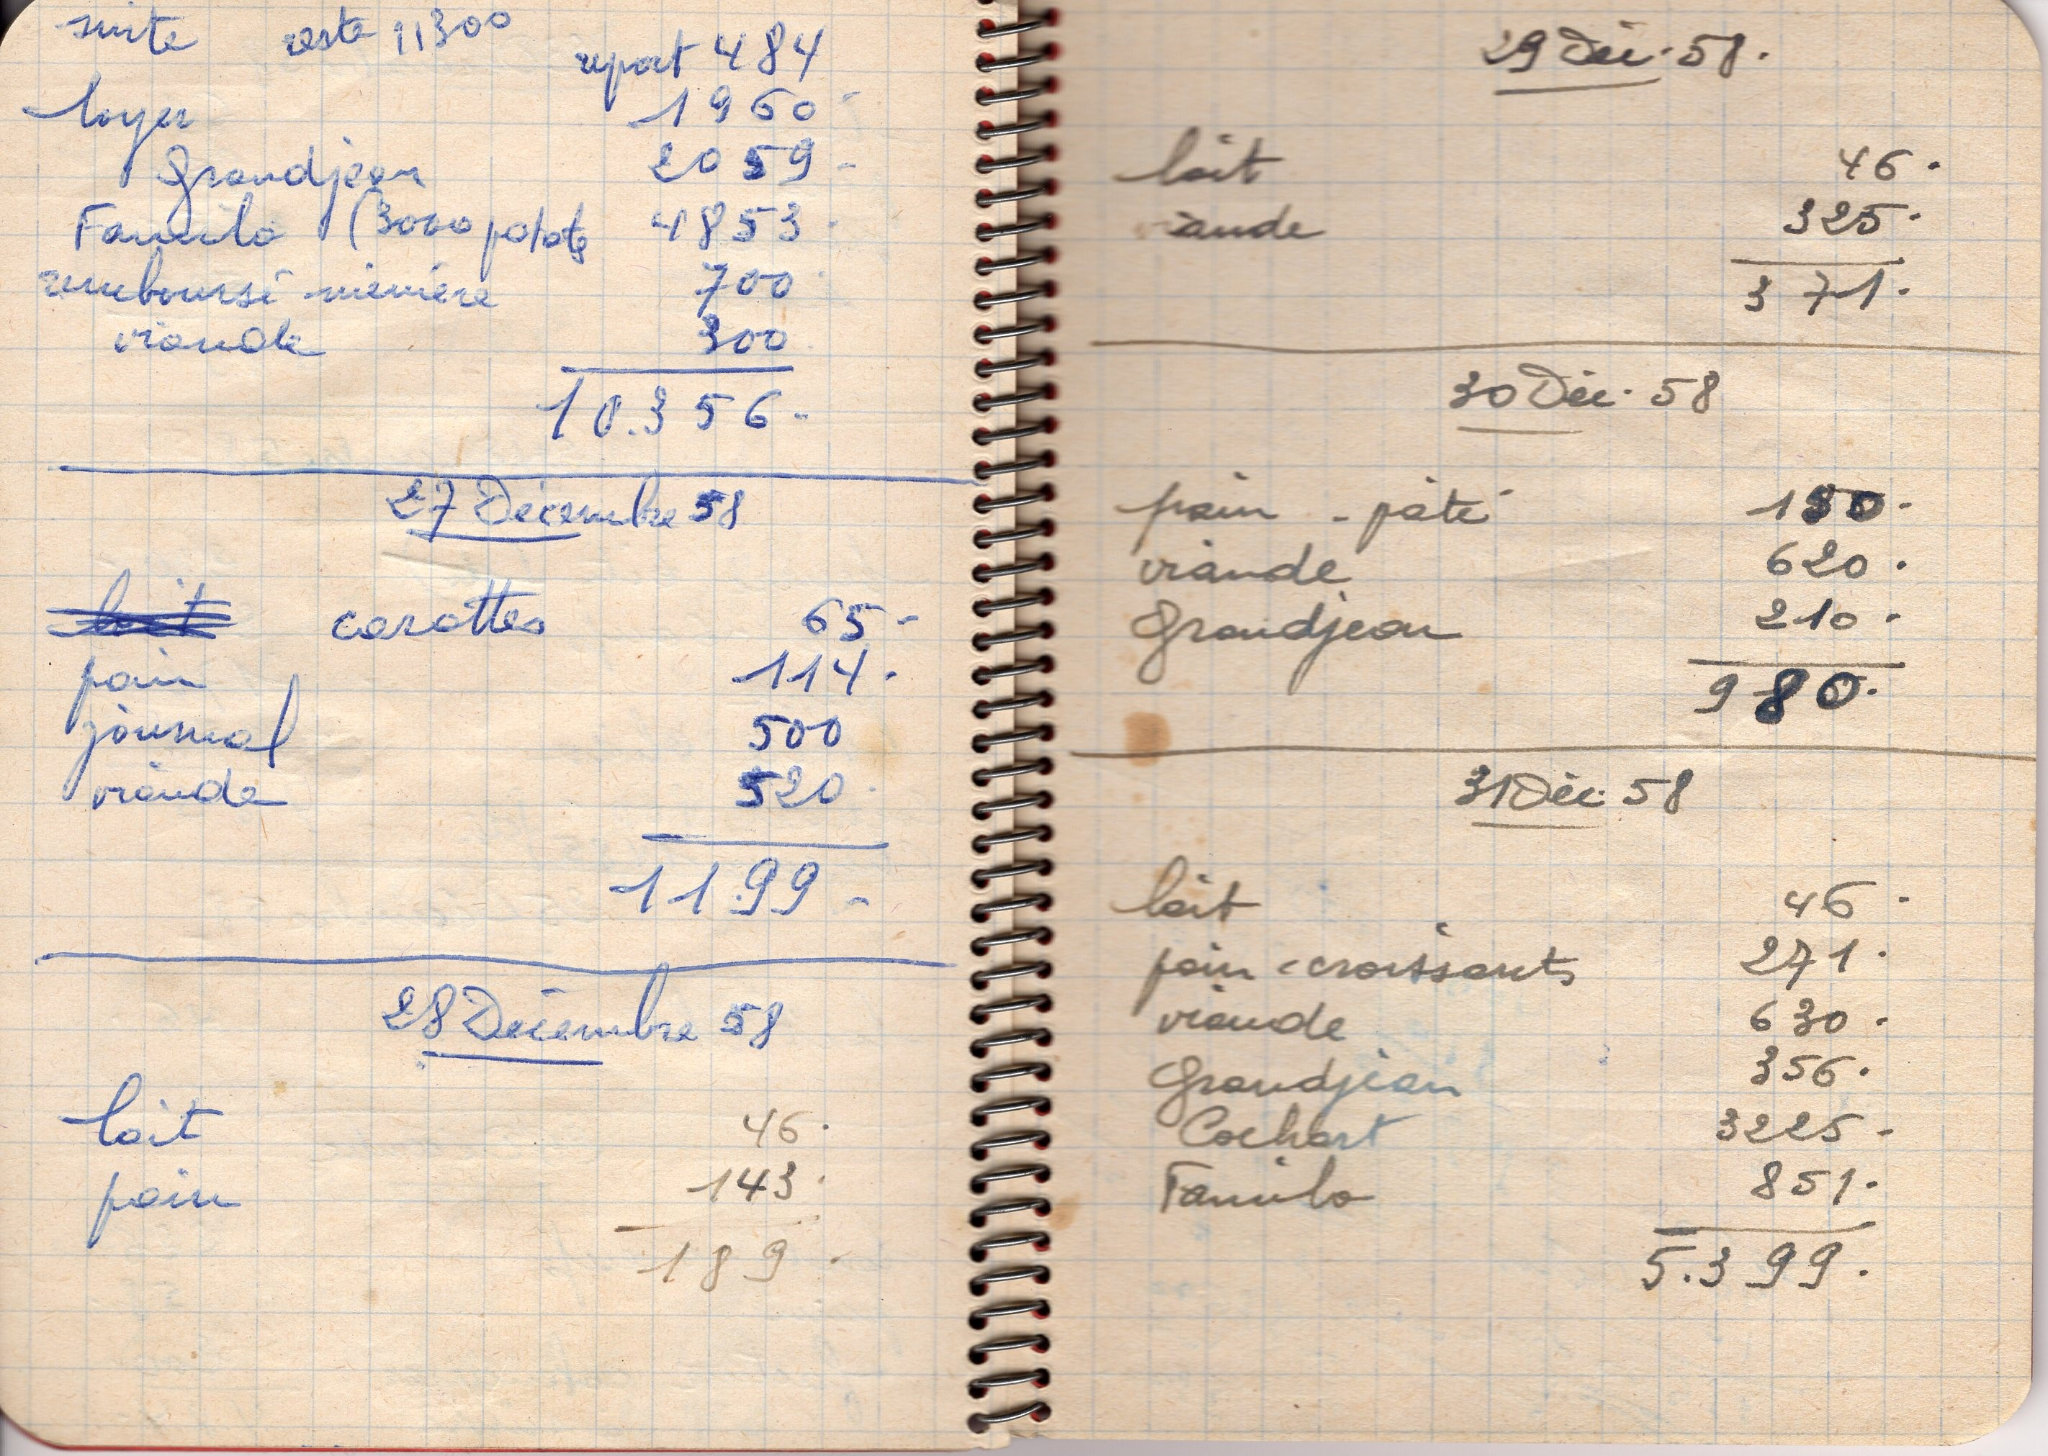 suite reste 11300
report 484
loyer 1960-
Grandjean 2059-
Familo (3000 patates 4853.
remboursé mémère 700
viande 300
10.356-
27 Décembre 58
lait carottes 65-
pain 114.
journal 500
viande 520.
1199-
28 Décembre 58
lait 46.
pain 143.
189.
29 Déc. 58.
lait 46.
viande 325.
371.
30 Déc. 58
pain - pâté 150.
viande 620.
Grandjean 210.
980.
31 Déc. 58
lait 46.
pain-croissants 271.
viande 630.
Grandjean 356.
Cochart 3225-
Familo 851.
5.399.